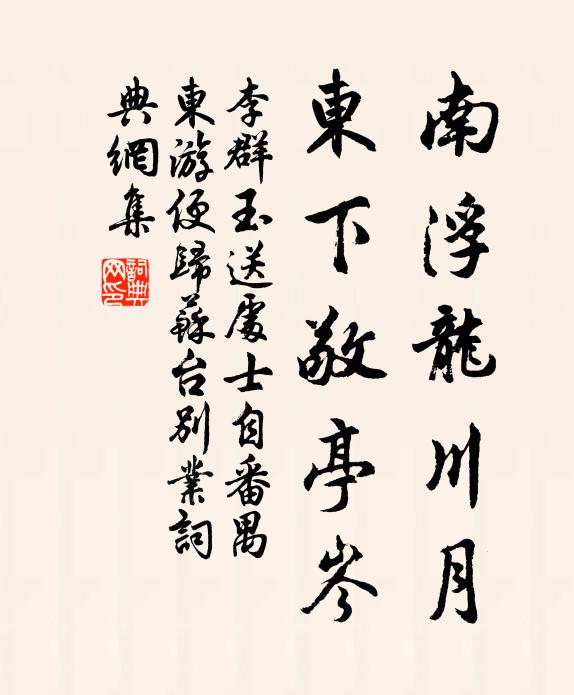 南浮龍川月
東下敬亭岑
李群玉送處士自番禺
東游便歸蘇台別業詞
典網集
詞典網印